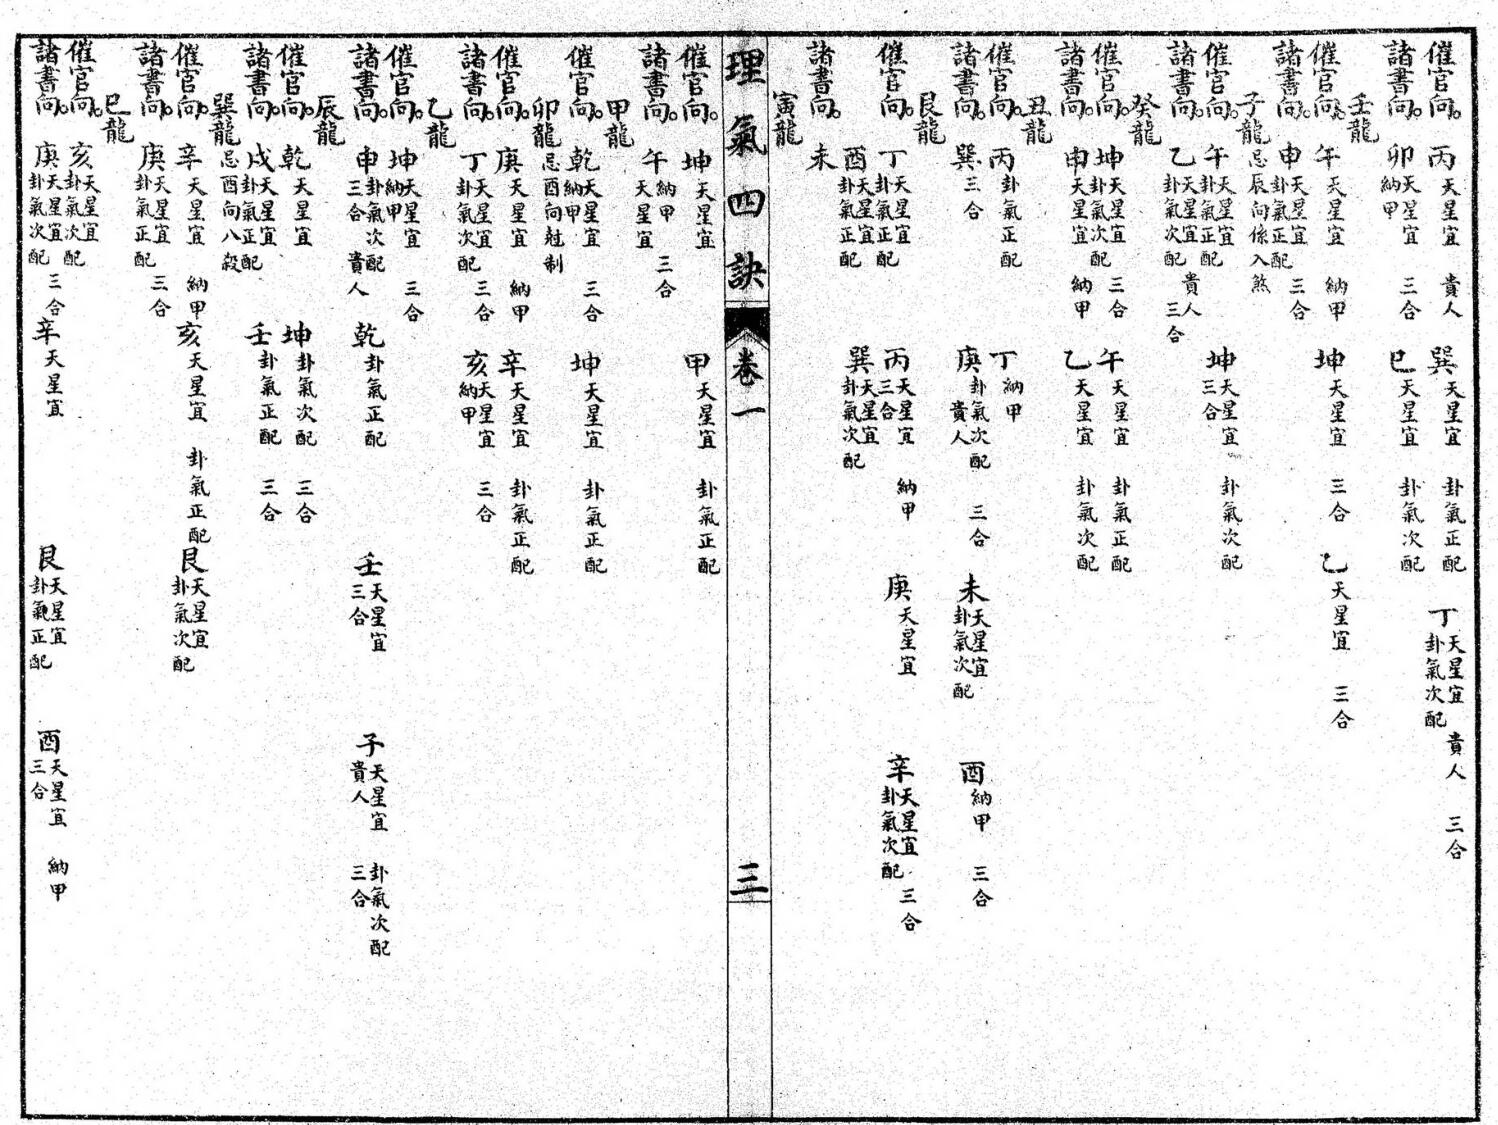 催官向。丙天星宜 貴人 巽天星宜 卦氣正配 丁天星宜卦氣次配 貴人 三合
諸書向。卯天星宜納甲 三合 巳天星宜 卦氣次配
壬龍
催官向。午天星宜 納甲 坤天星宜 三合 乙天星宜 三合
諸書向。申天星宜卦氣正配 三合
子龍忌辰向係入煞
催官向。午天星宜卦氣正配 貴人 坤天星宜三合 卦氣次配
諸書向。乙天星宜卦氣次配 三合
癸龍
催官向。坤天星宜卦氣次配 三合 午天星宜 卦氣正配
諸書向。申天星宜 納甲 乙天星宜 卦氣次配
丑龍
催官向。丙卦氣正配 丁納甲
諸書向。巽三合 庚卦氣次配貴人 三合 未天星宜卦氣次配 酉納甲 三合
艮龍
催官向。丁天星宜卦氣正配 丙天星宜三合 納甲 庚天星宜 辛天星宜卦氣次配 三合
酉天星宜卦氣正配 巽天星宜卦氣次配
諸書向。未
寅龍
理氣四訣 卷一 三
催官向。坤天星宜 甲天星宜 卦氣正配
諸書向。午納甲天星宜 三合
甲龍
催官向。乾天星宜納甲 三合 坤天星宜 卦氣正配
卯龍忌酉向尅制
催官向。庚天星宜 納甲 辛天星宜 卦氣正配
諸書向。丁天星宜卦氣次配 三合 亥天星宜納甲 三合
乙龍
催官向。坤天星宜納甲 三合
諸書向。申卦氣次配三合 貴人 乾卦氣正配 壬天星宜三合 子天星宜貴人 卦氣次配三合
辰龍
催官向。乾天星宜 坤卦氣次配 三合
諸書向。戌天星宜卦氣正配 壬卦氣正配 三合
巽龍忌酉向八殺
催官向。辛天星宜 納甲 亥天星宜 卦氣正配 艮天星宜卦氣次配
諸書向。庚天星宜卦氣正配 三合
巳龍
催官向。亥天星宜卦氣次配
諸書向。庚天星宜卦氣次配 三合 辛天星宜 艮天星宜卦氣正配 酉天星宜三合 納甲